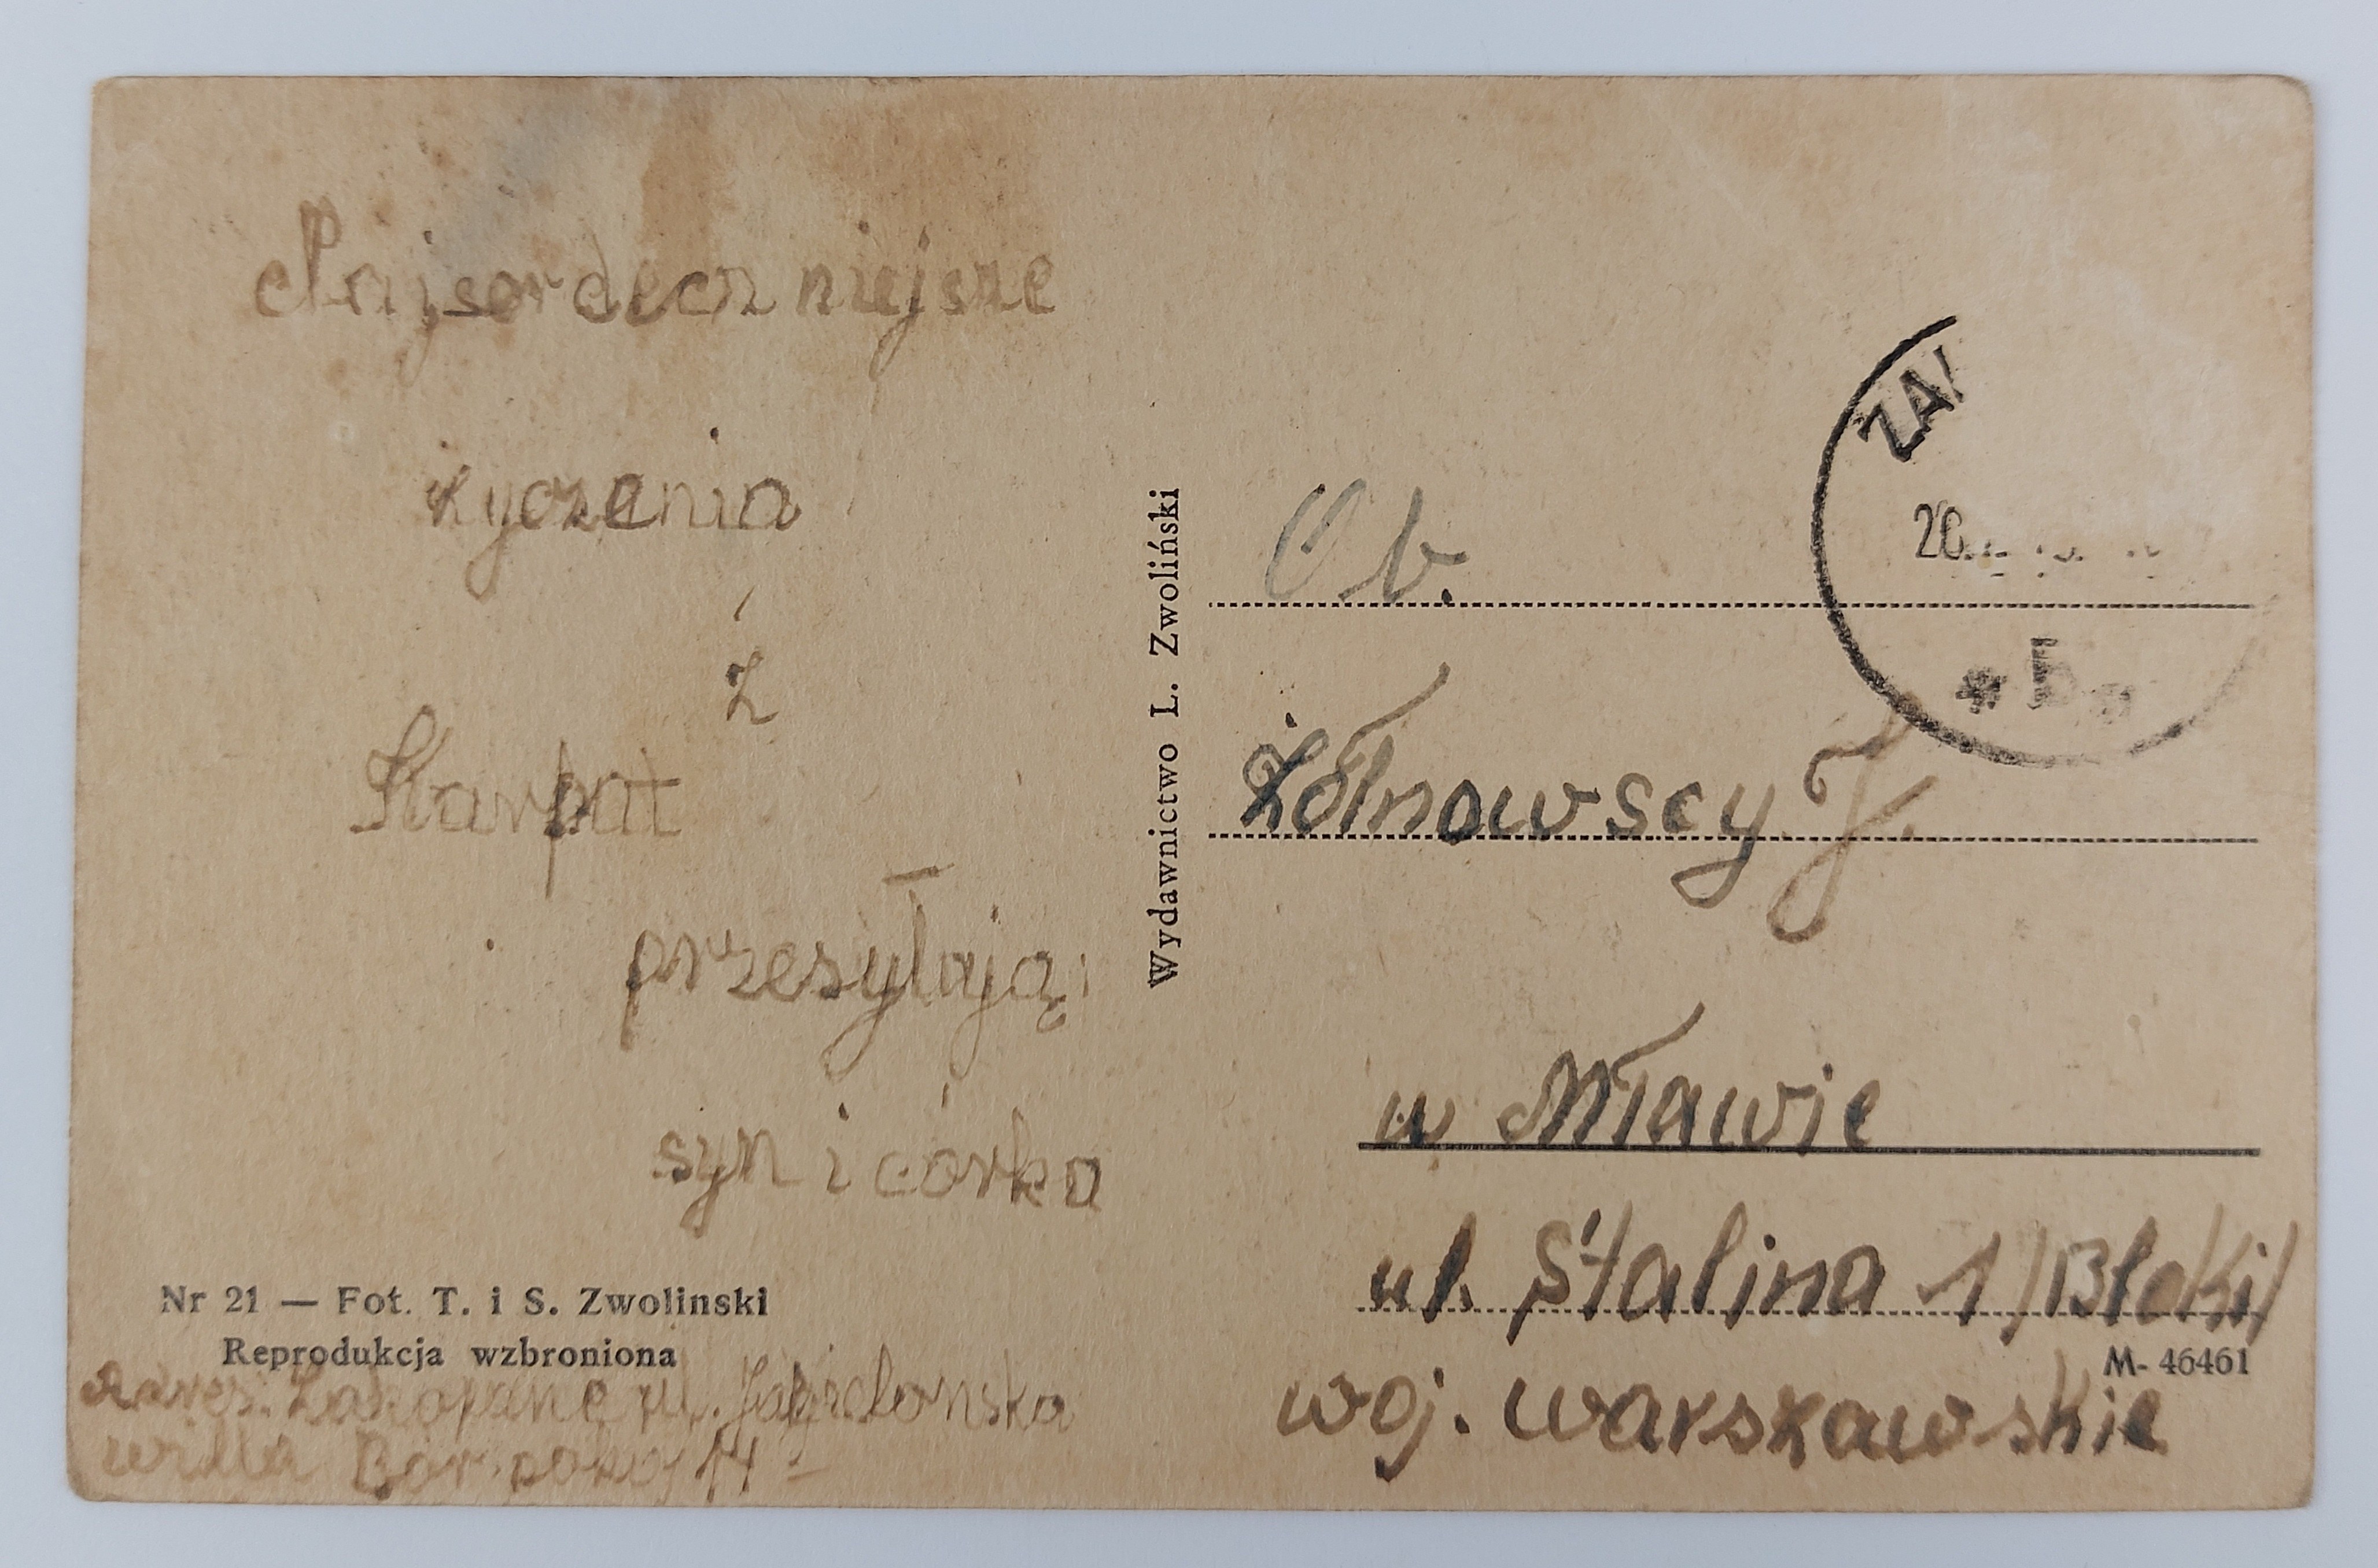 Najserdeczniejsze
życzenia
z
Karpat
przesyłają:
syn i córka
Nr 21 — Fot. T. i S. Zwolinski
Reprodukcja wzbroniona
Adres: Zakopane ul. Jagielońska
willa Bór pokój 14
Wydawnictwo L. Zwoliński
ZA
20.
* *
Ob.
Żółnowscy J.
w Mławie
ul. Stalina 1 /Bloki/
M- 46461
woj. warszawskie